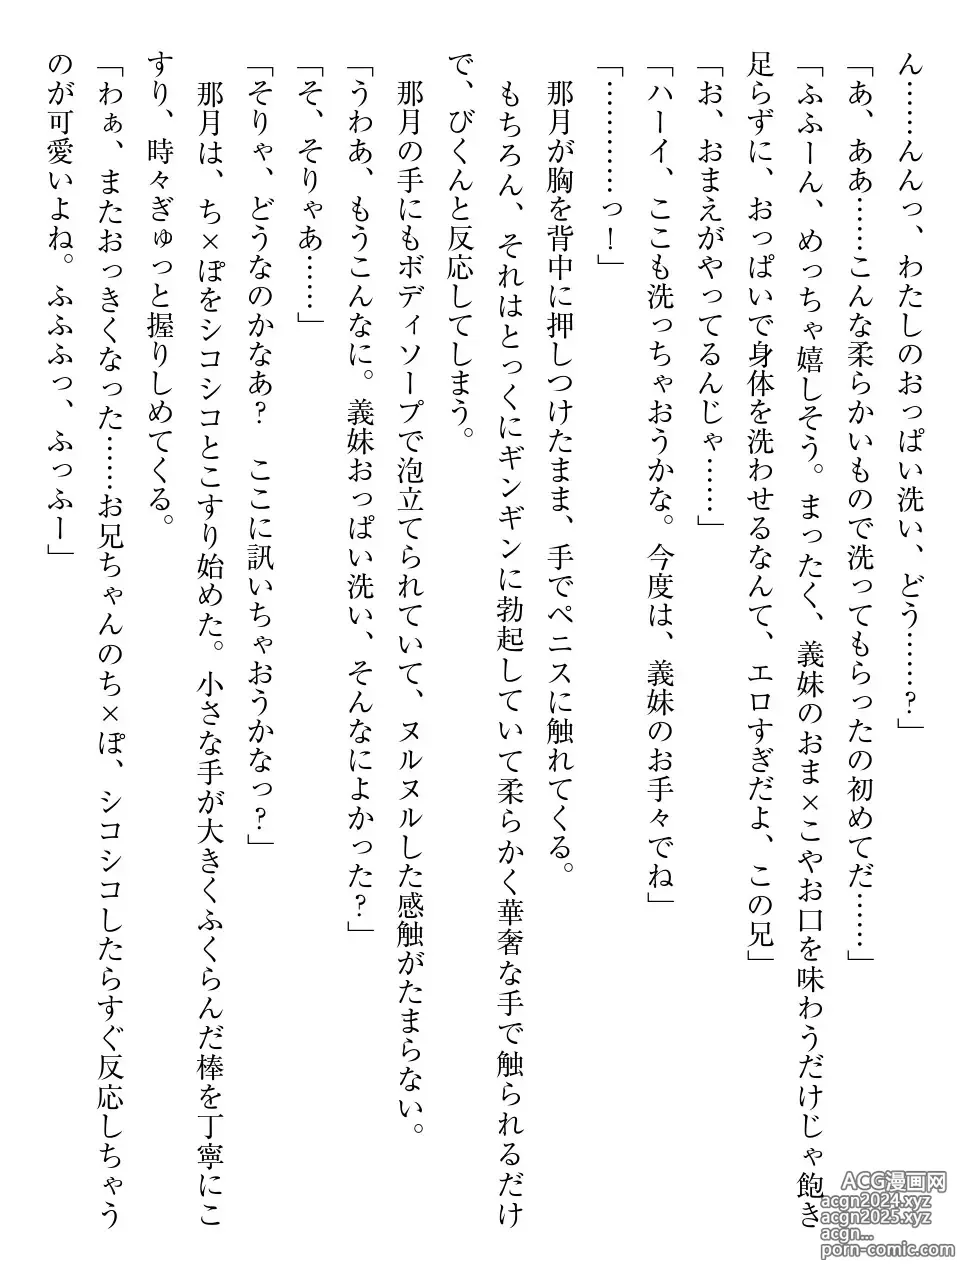 ん……んんっ、わたしのおっぱい洗い、どう……？」
「あ、ああ……こんな柔らかいもので洗ってもらったの初めてだ……」
「ふふーん、めっちゃ嬉しそう。まったく、義妹のおま×こやお口を味わうだけじゃ飽き
足らずに、おっぱいで身体を洗わせるなんて、エロすぎだよ、この兄」
「お、おまえがやってるんじゃ……」
「ハーイ、ここも洗っちゃおうかな。今度は、義妹のお手々でね」
「…………っ！」
那月が胸を背中に押しつけたまま、手でペニスに触れてくる。
もちろん、それはとっくにギンギンに勃起していて柔らかく華奢な手で触られるだけ
で、びくんと反応してしまう。
那月の手にもボディソープで泡立てられていて、ヌルヌルした感触がたまらない。
「うわあ、もうこんなに。義妹おっぱい洗い、そんなによかった？」
「そ、そりゃあ……」
「そりゃ、どうなのかなあ？　ここに訊いちゃおうかなっ？」
那月は、ち×ぽをシコシコとこすり始めた。小さな手が大きくふくらんだ棒を丁寧にこ
すり、時々ぎゅっと握りしめてくる。
「わぁ、またおっきくなった……お兄ちゃんのち×ぽ、シコシコしたらすぐ反応しちゃう
のが可愛いよね。ふふふっ、ふっふー」
ACG漫画网
acgn2024.xyz
acgn2025.xyz
acgn...
porn-comic.com